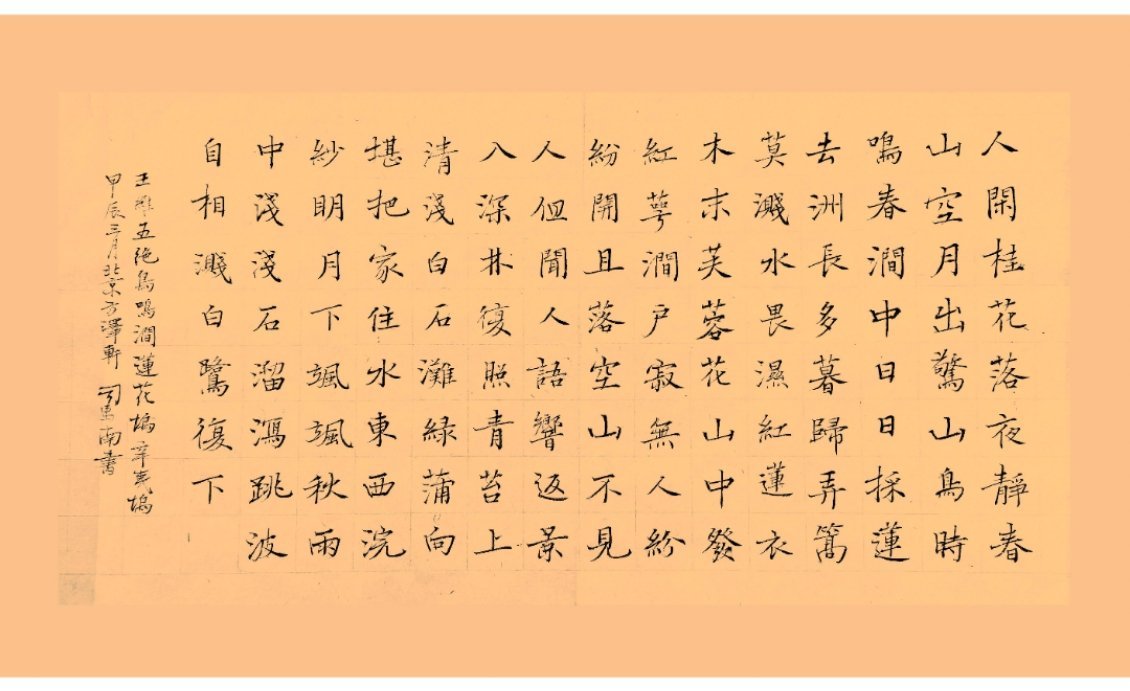 人閑桂花落夜靜春
山空月出驚山鳥時
鳴春澗中日日採蓮
去洲長多暮歸弄篙
莫濺水畏濕紅蓮衣
木末芙蓉花山中發
紅萼澗户寂無人紛
紛開且落空山不見
人但聞人語響返景
入深林復照青苔上
清淺白石灘綠蒲向
堪把家住水東西浣
紗明月下颯颯秋雨
中淺淺石溜瀉跳波
自相濺白鷺復下
王維五絶鳥鳴澗蓮花塢辛夷塢
甲辰三月北京方澤軒 司馬南書